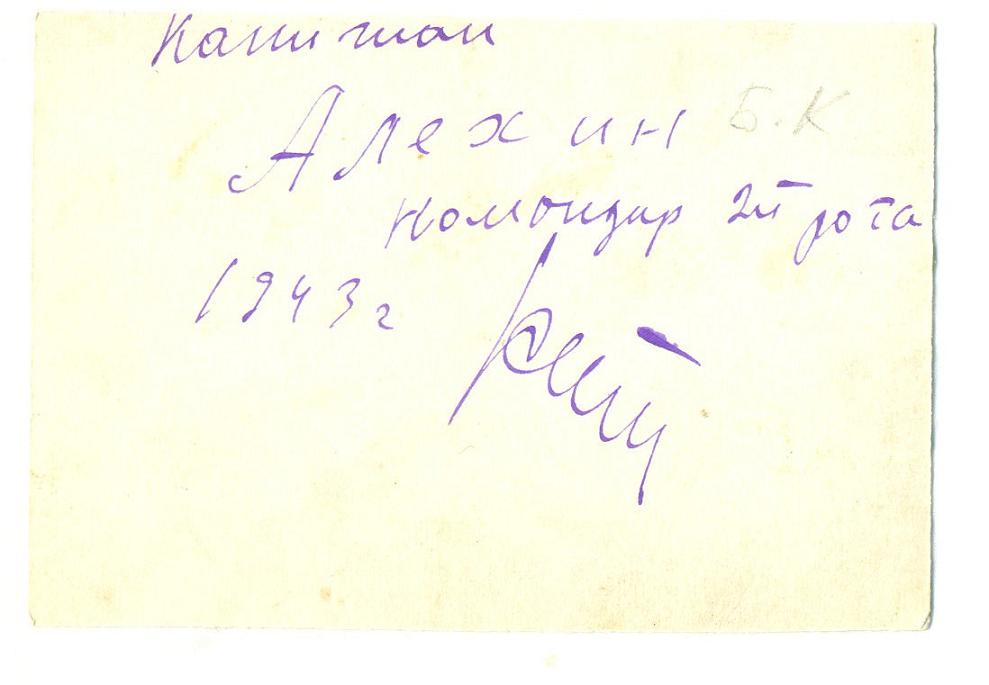 Капитан
Алехин Б.К
командир 2й рота
1943г